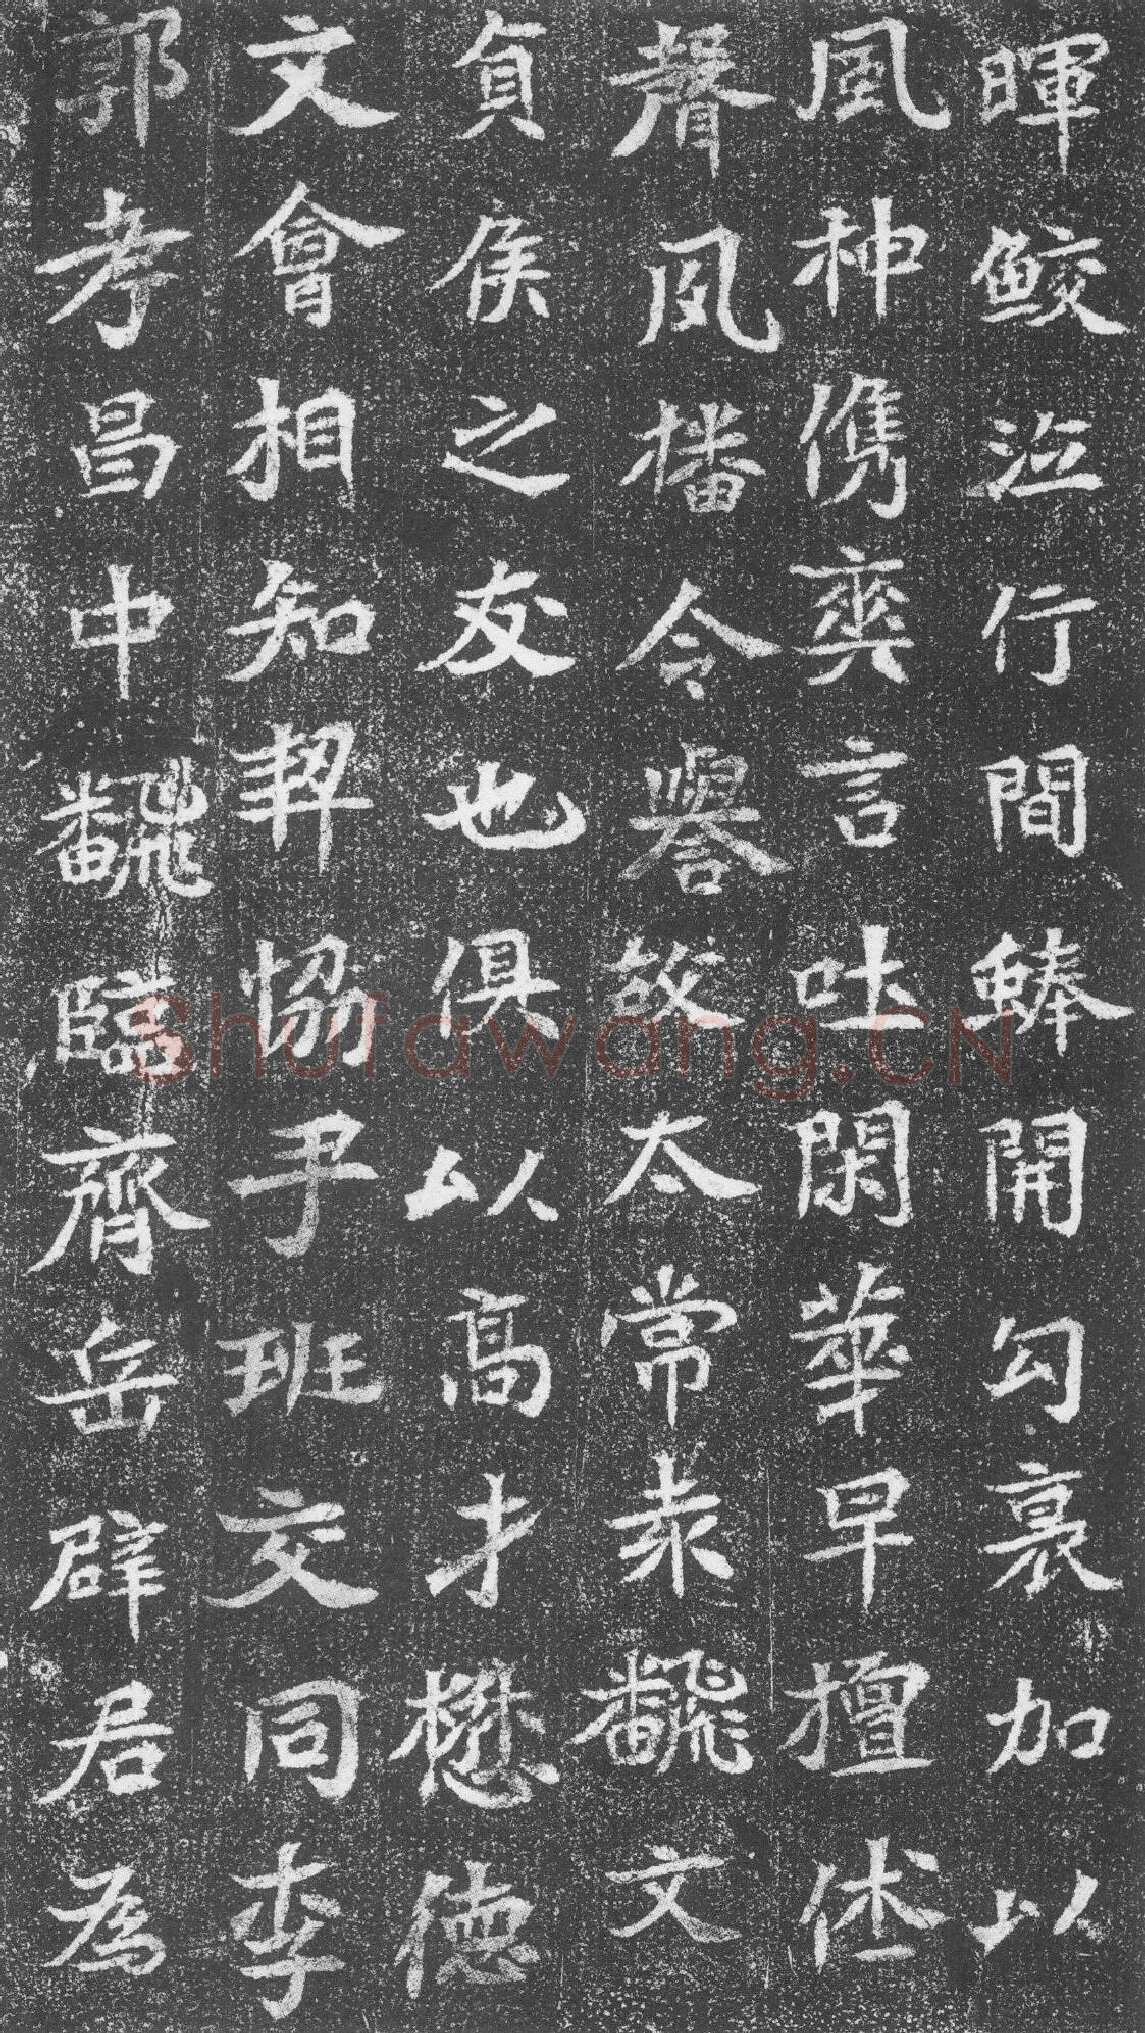 暉鮫泣行間開勾裏加以
風神儁爽言吐閑華早擅休
聲夙播令譽故太常袁飜文
貞侯之友也俱以高才懋德
文會相知契協尹班交同李
郭孝昌中飜臨齊岳辟君為
Shufawang.CN